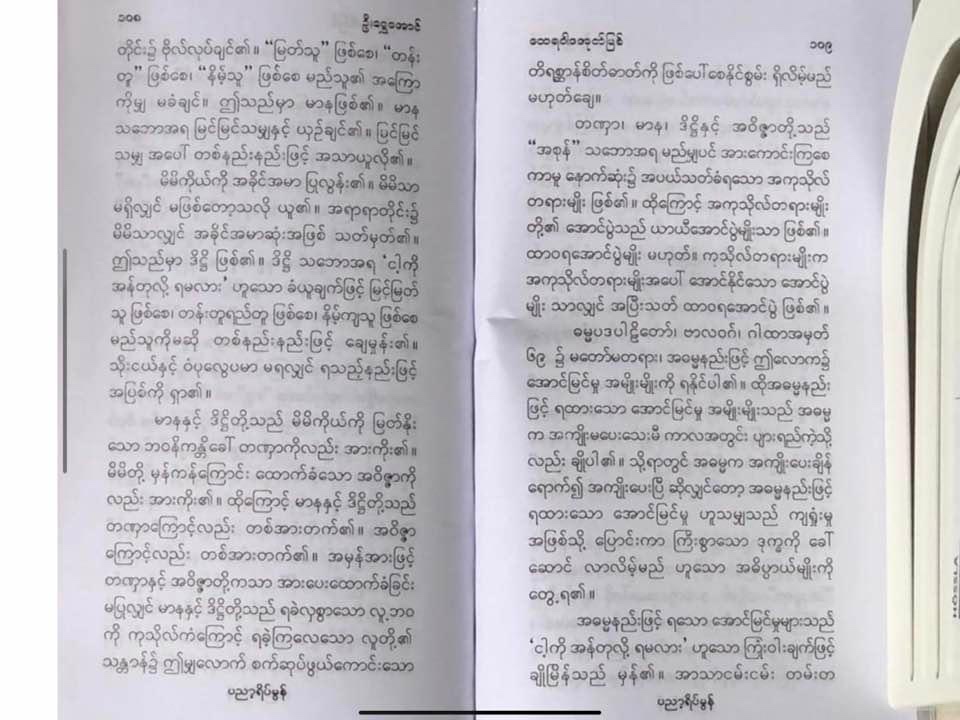 ၁၀၈
ဦးရွှေအောင်
တိုင်း၌ ဗိုလ်လုပ်ချင်၏။ “မြတ်သူ” ဖြစ်စေ၊ “တန်း
တူ” ဖြစ်စေ၊ “နိမ့်သူ” ဖြစ်စေ မည်သူ၏ အကြော
ကိုမျှ မခံချင်။ ဤသည်မှာ မာနဖြစ်၏။ မာန
သဘောအရ မြင်မြင်သမျှနှင့် ယှဉ်ချင်၏။ မြင်မြင်
သမျှ အပေါ် တစ်နည်းနည်းဖြင့် အသာယူလို၏။
မိမိကိုယ်ကို အခိုင်အမာ ပြုလွန်း၏။ မိမိသာ
မရှိလျှင် မဖြစ်တော့သလို ယူ၏။ အရာရာတိုင်း၌
မိမိသာလျှင် အခိုင်အမာဆုံးအဖြစ် သတ်မှတ်၏။
ဤသည်မှာ ဒိဋ္ဌိ ဖြစ်၏။ ဒိဋ္ဌိ သဘောအရ ‘ငါ့ကို
အန်တုလို့ ရမလား’ ဟူသော ခံယူချက်ဖြင့် မြင့်မြတ်
သူ ဖြစ်စေ၊ တန်းတူရည်တူ ဖြစ်စေ၊ နိမ့်ကျသူ ဖြစ်စေ
မည်သူကိုမဆို တစ်နည်းနည်းဖြင့် ချေမှုန်း၏။
သိုးငယ်နှင့် ဝံပုလွေပမာ မရလျှင် ရသည့်နည်းဖြင့်
အပြစ်ကို ရှာ၏။
မာနနှင့် ဒိဋ္ဌိတို့သည် မိမိကိုယ်ကို မြတ်နိုး
သော ဘဝနိကန္တိခေါ် တဏှာကိုလည်း အားကိုး၏။
မိမိတို့ မှန်ကန်ကြောင်း ထောက်ခံသော အဝိဇ္ဇာကို
လည်း အားကိုး၏။ ထို့ကြောင့် မာနနှင့် ဒိဋ္ဌိတို့သည်
တဏှာကြောင့်လည်း တစ်အားတက်၏။ အဝိဇ္ဇာ
ကြောင့်လည်း တစ်အားတက်၏။ အမှန်အားဖြင့်
တဏှာနှင့် အဝိဇ္ဇာတို့ကသာ အားပေးထောက်ခံခြင်း
မပြုလျှင် မာနနှင့် ဒိဋ္ဌိတို့သည် ရခဲလှစွာသော လူ့ဘဝ
ကို ကုသိုလ်ကံကြောင့် ရခဲ့ကြလေသော လူတို့၏
သန္တာန်၌ ဤမျှလောက် စက်ဆုပ်ဖွယ်ကောင်းသော
ပညာ့ရိပ်မွန်
၁၀၉
တိရစ္ဆာန်စိတ်ဓာတ်ကို ဖြစ်ပေါ်စေနိုင်စွမ်း ရှိလိမ့်မည်
မဟုတ်ချေ။
တဏှာ၊ မာန၊ ဒိဋ္ဌိနှင့် အဝိဇ္ဇာတို့သည်
“အစုန်” သဘောအရ မည်မျှပင် အားကောင်းကြစေ
ကာမူ နောက်ဆုံး၌ အပယ်သတ်ခံရသော အကုသိုလ်
တရားမျိုး ဖြစ်၏။ ထို့ကြောင့် အကုသိုလ်တရားမျိုး
တို့၏ အောင်ပွဲသည် ယာယီအောင်ပွဲမျိုးသာ ဖြစ်၏။
ထာဝရအောင်ပွဲမျိုး မဟုတ်။ ကုသိုလ်တရားမျိုးက
အကုသိုလ်တရားမျိုးအပေါ် အောင်နိုင်သော အောင်ပွဲ
မျိုး သာလျှင် အပြီးသတ် ထာဝရအောင်ပွဲ ဖြစ်၏။
ဓမ္မပဒပါဠိတော်၊ ဗာလဝဂ်၊ ဂါထာအမှတ်
၆၉ ၌ မတော်မတရား၊ အဓမ္မနည်းဖြင့် ဤလောက၌
အောင်မြင်မှု အမျိုးမျိုးကို ရနိုင်ပါ၏။ ထိုအဓမ္မနည်း
ဖြင့် ရထားသော အောင်မြင်မှု အမျိုးမျိုးသည် အဓမ္မ
က အကျိုးမပေးသေးမီ ကာလအတွင်း ပျားရည်ကဲ့သို့
လည်း ချိုပါ၏။ သို့ရာတွင် အဓမ္မက အကျိုးပေးချိန်
ရောက်၍ အကျိုးပေးပြီ ဆိုလျှင်တော့ အဓမ္မနည်းဖြင့်
ရထားသော အောင်မြင်မှု ဟူသမျှသည် ကျရှုံးမှု
အဖြစ်သို့ ပြောင်းကာ ကြီးစွာသော ဒုက္ခကို ခေါ်
ဆောင် လာလိမ့်မည် ဟူသော အဓိပ္ပာယ်မျိုးကို
တွေ့ရ၏။
အဓမ္မနည်းဖြင့် ရသော အောင်မြင်မှုများသည်
‘ငါ့ကို အန်တုလို့ ရမလား’ ဟူသော ကြုံးဝါးချက်ဖြင့်
ချိုမြိန်သည် မှန်၏။ အာသာငမ်းငမ်း တမ်းတ
ပညာ့ရိပ်မွန်